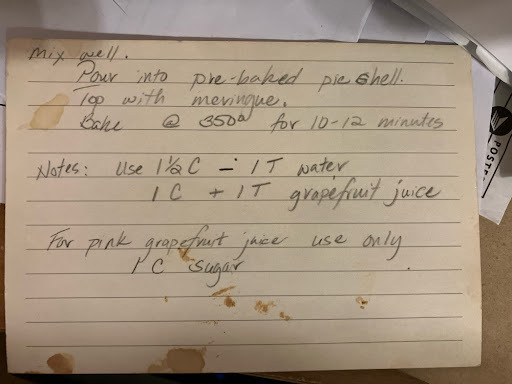 Mix well.
Pour into pre-baked pie shell.
Top with meringue.
Bake @ 350° for 10-12 minutes
Notes: Use 1½ C - 1 T water
1 C + 1 T grapefruit juice
For pink grapefruit juice use only
1 C sugar.
POSTE